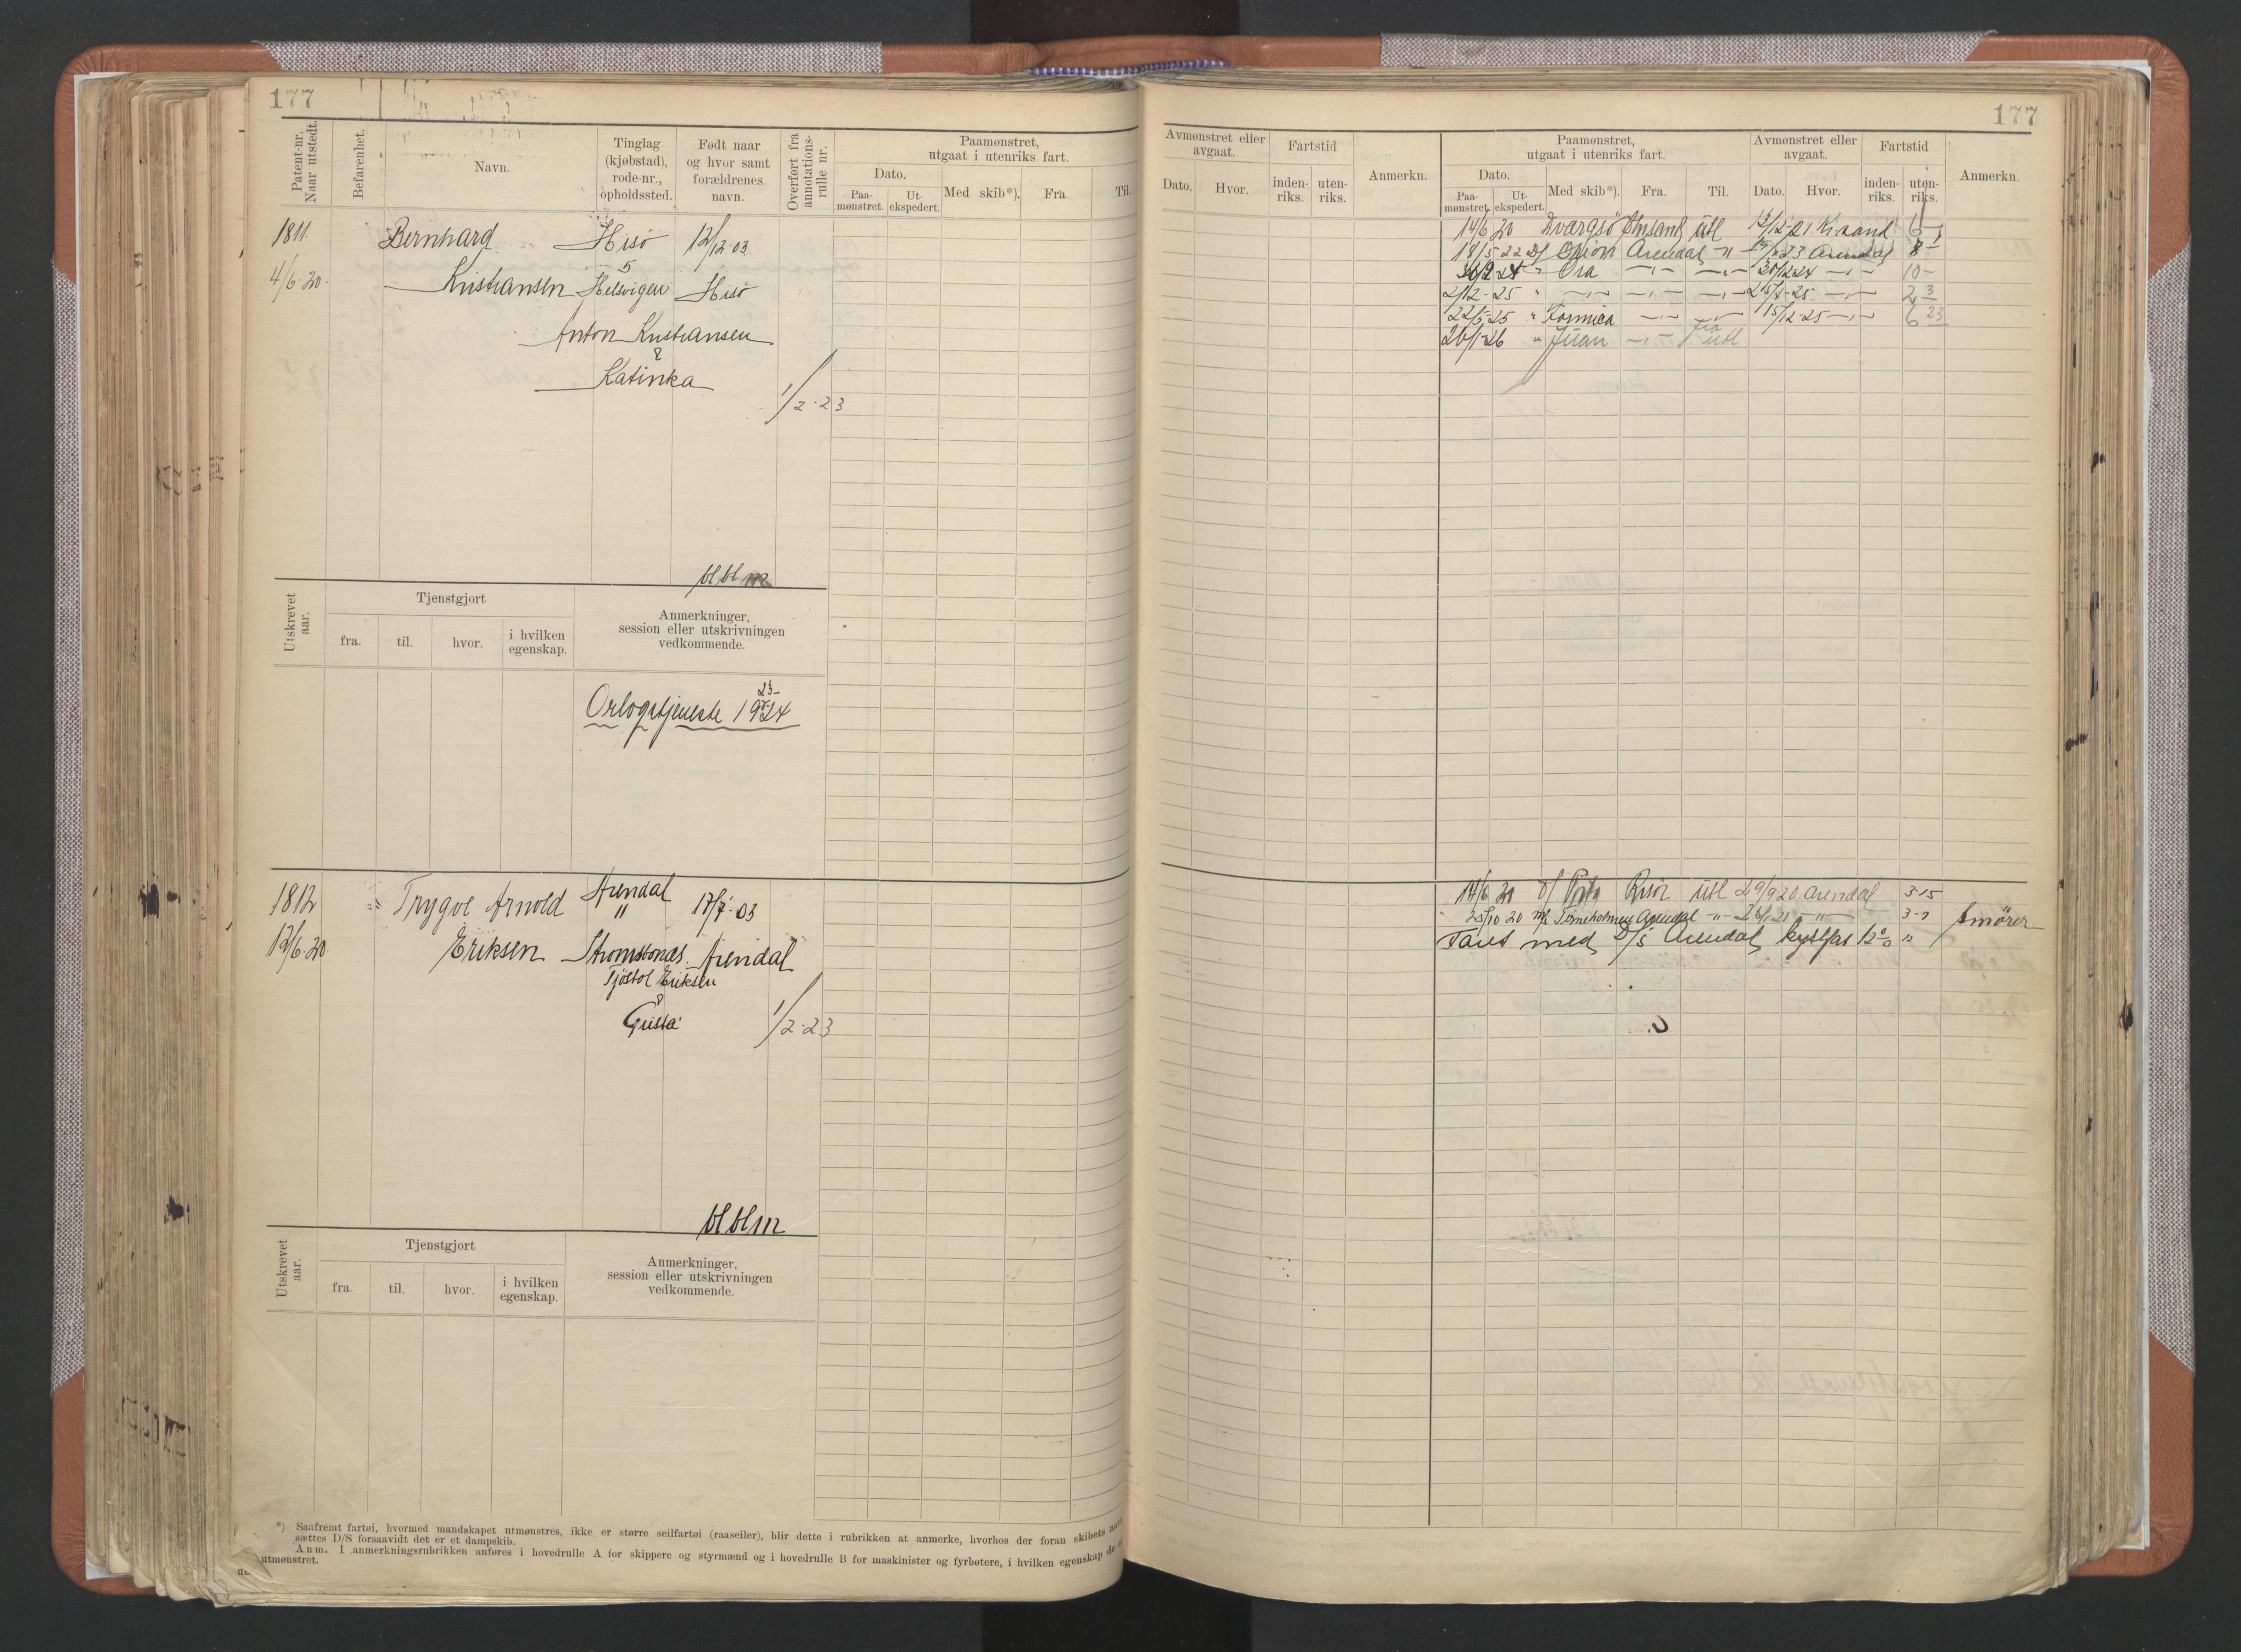 177
Patent-nr. Naar utstedt.
Befarenhet.
Navn.
Tinglag (kjøbstad), rode-nr., opholdssted.
Født naar og hvor samt forældrenes navn.
Overført fra annotations-rulle nr.
Paamønstret, utgaat i utenriks fart.
Dato.
Paa-mønstret.
Ut-ekspedert.
Med skib*).
Fra
Til.
1811 Bernhard Hisö 12/12·03
4/6·20· Kristiansen 5 Helsvigen Hisö
Anton Kristiansen
&
Katinka
1/2·23
bl bl m
Utskrevet aar.
Tjenstgjort
fra.
til.
hvor.
i hvilken egenskap.
Anmerkninger, session eller utskrivningen vedkommende.
23-
Orlogstjeneste 1924
1812 Trygve Arnold Arendal 17/7·03
"
12/6·20 Eriksen Strømsbonæs Arendal
Tjöstol Eriksen
&
Gusta
1/2·23
bl bl m
Utskrevet aar.
Tjenstgjort
fra.
til.
hvor.
i hvilken egenskap.
Anmerkninger, session eller utskrivningen vedkommende.
*) Saafremt fartøi, hvormed mandskapet utmønstres, ikke er større seilfartøi (raaseiler), blir dette i rubrikken at anmerke, hvorhos der foran skibets
sættes D/S forsaavidt det er et dampskib.
Anm. I anmerkningsrubrikken anføres i hovedrulle A for skippere og styrmænd og i hovedrulle B for maskinister og fyrbøtere, i hvilken egenskap de
utmønstret.
177
Avmønstret eller avgaat.
Dato.
Hvor.
Fartstid
inden-riks.
uten-riks.
Anmerkn.
Paamønstret, utgaat i utenriks fart.
Dato.
Paa-mønstret.
Ut-ekspedert.
Med skib*).
Fra.
Til.
Avmønstret eller avgaat.
Dato.
Hvor.
Fartstid
inden-riks.
uten-riks.
Anmerkn.
14/6 20 Dvergsö utl 21 Krsand 6
18/5-22 D/ Orion Arendal -"- 23 Arendal 8
24 " Ora 30/12 24 10
2/12-25 " 25 2 3
22/5-25 " Formica 15/12-25 6 23
26/1-26 " Juan fra utl
14/6 20 D/ Risör utl 29/9 20 Arendal 3-15
25/10 20 M/s Torneholmen Arendal -"- 21 -"- Smører
Faret med D/s Arendal kystfart 12